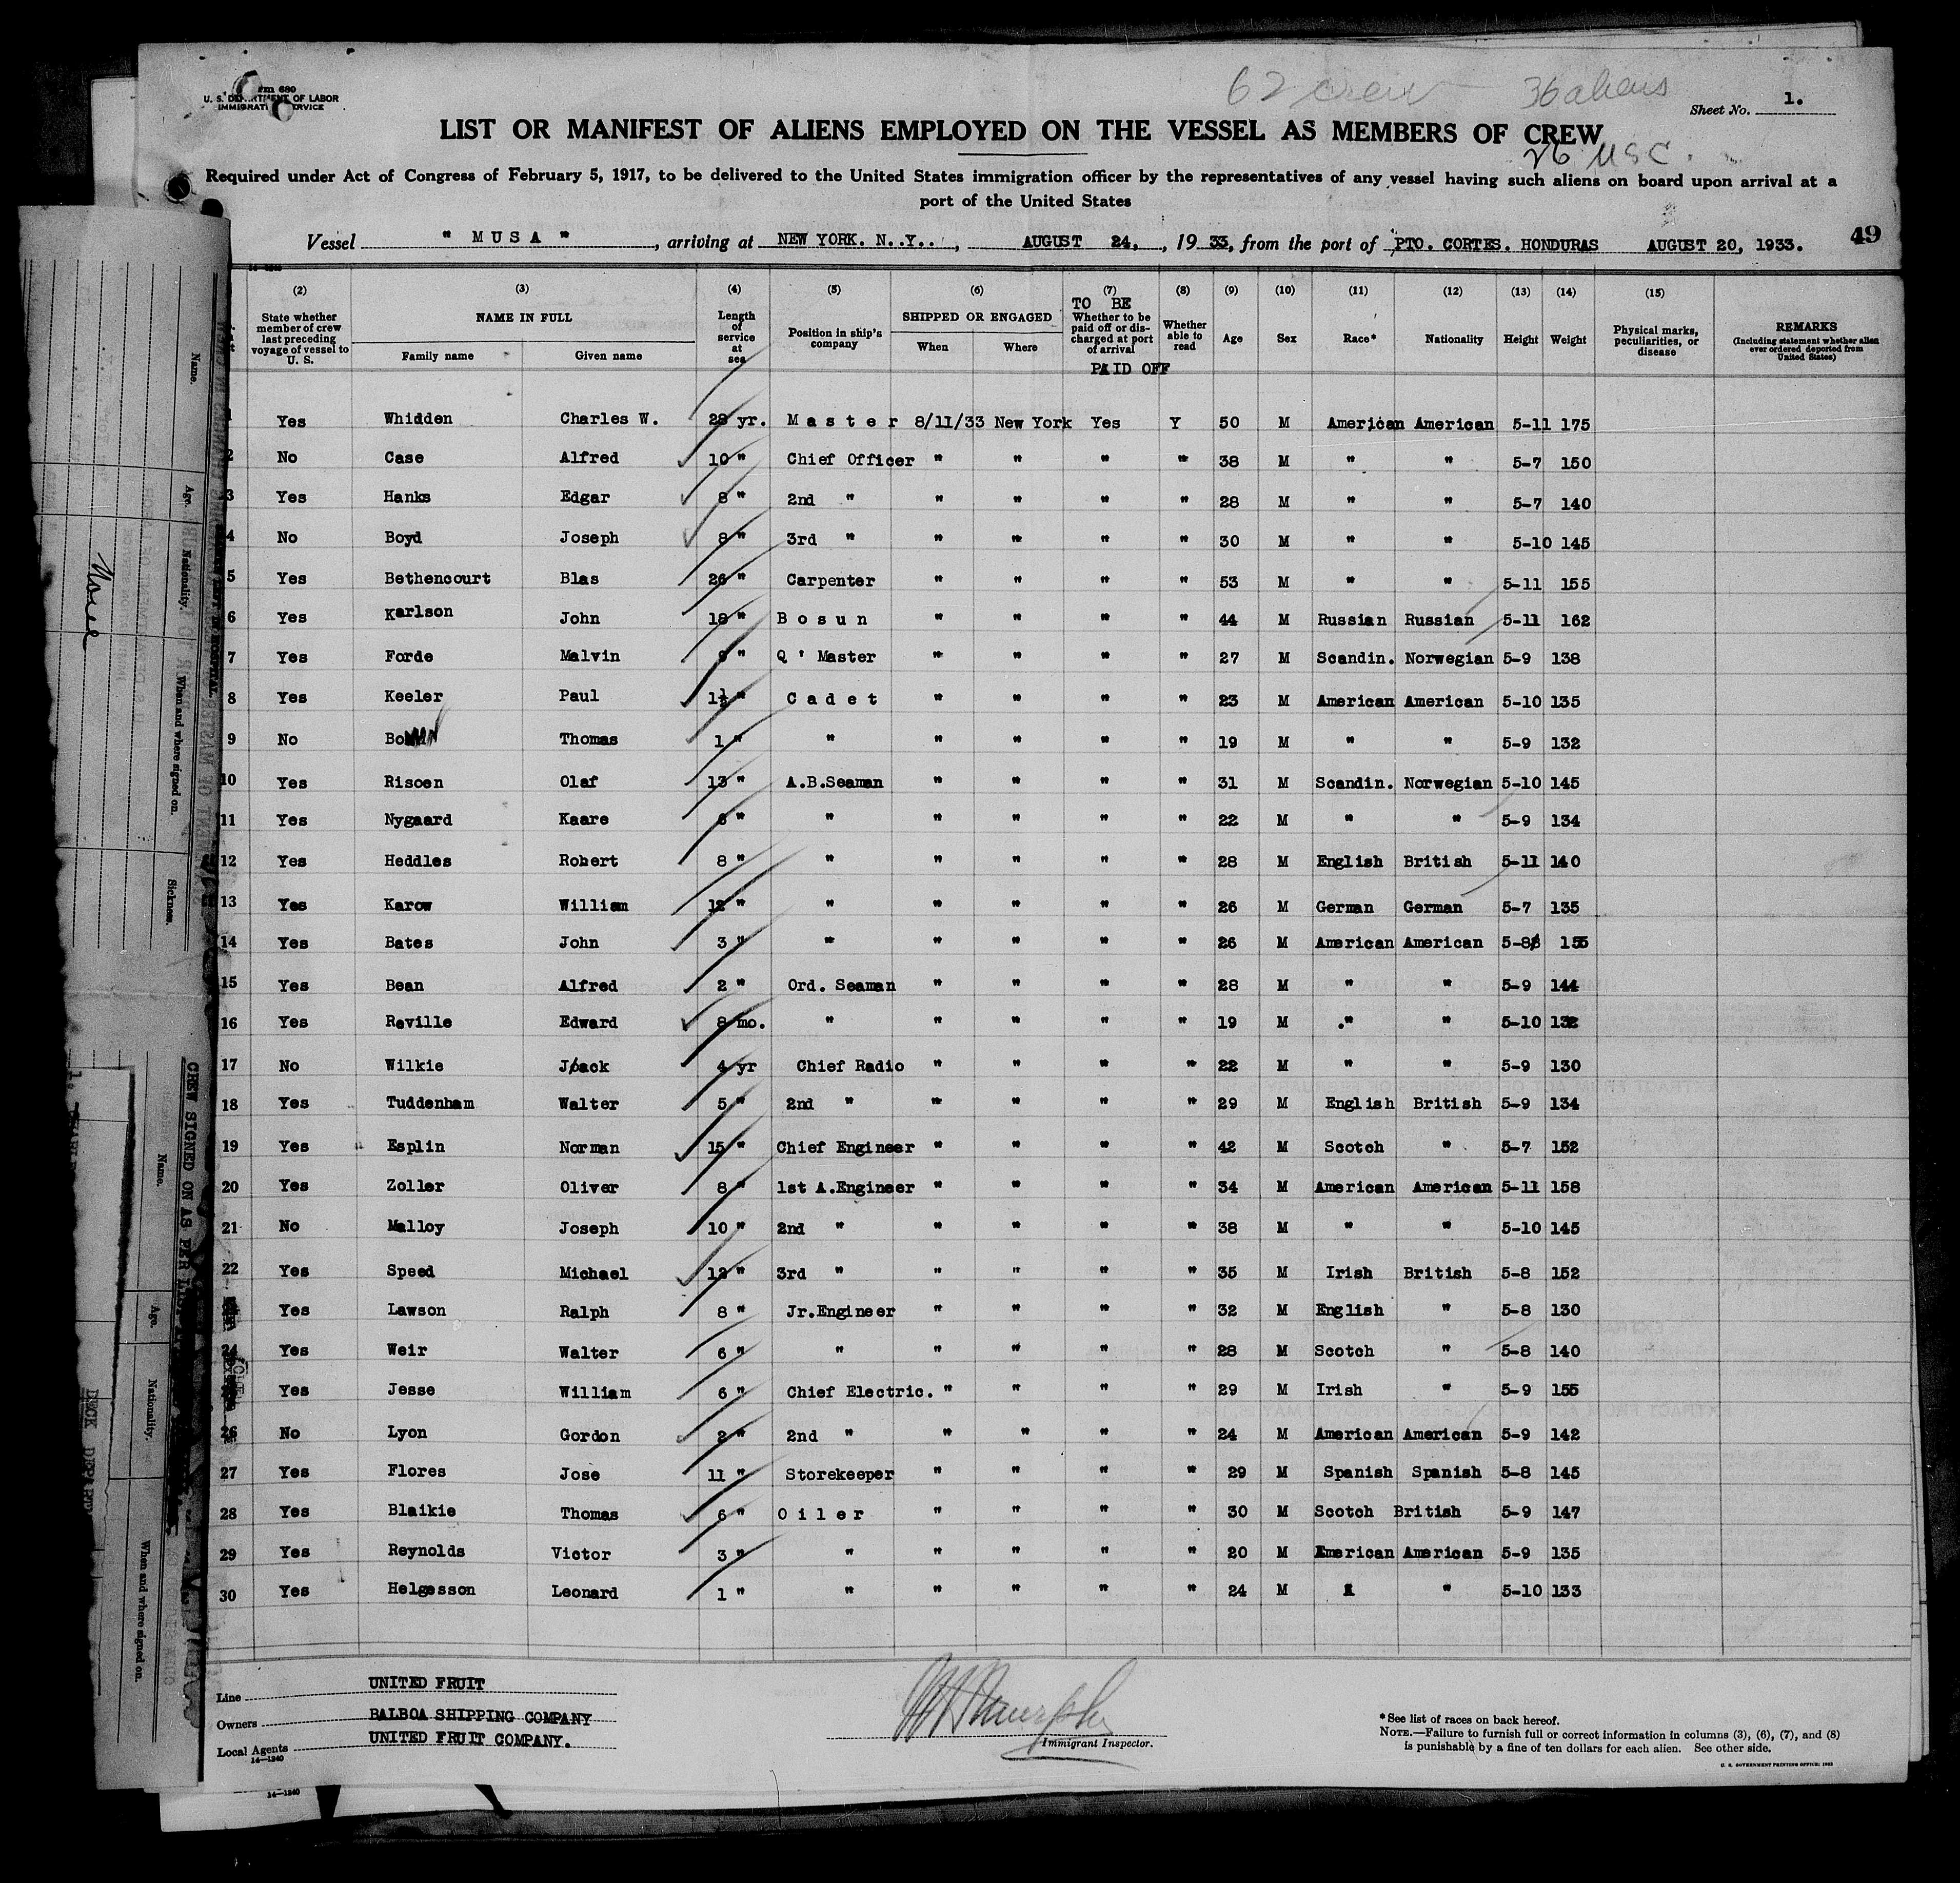 62 crew 36 aliens
26 USC.
U. S. DEPARTMENT OF LABOR
IMMIGRATION SERVICE
Sheet No. 1.
LIST OR MANIFEST OF ALIENS EMPLOYED ON THE VESSEL AS MEMBERS OF CREW
Required under Act of Congress of February 5, 1917, to be delivered to the United States immigration officer by the representatives of any vessel having such aliens on board upon arrival at a
port of the United States
Vessel " MUSA ", arriving at NEW YORK. N..Y.., AUGUST 24, , 19 33, from the port of PTO. CORTES. HONDURAS AUGUST 20, 1933. 49
(2) (3) (4) (5) (6) (7) (8) (9) (10) (11) (12) (13) (14) (15)
State whether member of crew last preceding voyage of vessel to U. S. NAME IN FULL Family name Given name Length of service at sea Position in ship's company SHIPPED OR ENGAGED When Where TO BE Whether to be paid off or discharged at port of arrival PAID OFF Whether able to read Age Sex Race* Nationality Height Weight Physical marks, peculiarities, or disease REMARKS (Including statement whether alien ever ordered deported from United States)
1 Yes Whidden Charles W. 28 yr. Master 8/11/33 New York Yes Y 50 M American American 5-11 175
2 No Case Alfred 10 " Chief Officer " " " " 38 M " " 5-7 150
3 Yes Hanks Edgar 8 " 2nd " " " " " 28 M " " 5-7 140
4 No Boyd Joseph 8 " 3rd " " " " " 30 M " " 5-10 145
5 Yes Bethencourt Blas 26 " Carpenter " " " " 53 M " " 5-11 155
6 Yes Karlson John 18 " Bosun " " " " 44 M Russian Russian 5-11 162
7 Yes Forde Malvin 9 " Q ' Master " " " " 27 M Scandin. Norwegian 5-9 138
8 Yes Keeler Paul 1½ " Cadet " " " " 23 M American American 5-10 135
9 No Thomas 1 " " " " " " 19 M " " 5-9 132
10 Yes Risoen Olaf 13 " A.B.Seaman " " " " 31 M Scandin. Norwegian 5-10 145
11 Yes Nygaard Kaare 6 " " " " " " 22 M " " 5-9 134
12 Yes Heddles Robert 8 " " " " " " 28 M English British 5-11 140
13 Yes Karow William 12 " " " " " " 26 M German German 5-7 135
14 Yes Bates John 3 " " " " " " 26 M American American 5-8 155
15 Yes Bean Alfred 2 " Ord. Seaman " " " " 28 M " " 5-9 144
16 Yes Reville Edward 8 mo. " " " " " 19 M " " 5-10 132
17 No Wilkie Jack 4 yr Chief Radio " " " " 22 M " " 5-9 130
18 Yes Tuddenham Walter 5 " 2nd " " " " " 29 M English British 5-9 134
19 Yes Esplin Norman 15 " Chief Engineer " " " " 42 M Scotch " 5-7 152
20 Yes Zoller Oliver 8 " 1st A.Engineer " " " " 34 M American American 5-11 158
21 No Malloy Joseph 10 " 2nd " " " " " 38 M " " 5-10 145
22 Yes Speed Michael 12 " 3rd " " " " " 35 M Irish British 5-8 152
Yes Lawson Ralph 8 " Jr.Engineer " " " " 32 M English " 5-8 130
24 Yes Weir Walter 6 " " " " " " 28 M Scotch " 5-8 140
Yes Jesse William 6 " Chief Electric. " " " " 29 M Irish " 5-9 155
26 No Lyon Gordon 2 " 2nd " " " " " 24 M American American 5-9 142
27 Yes Flores Jose 11 " Storekeeper " " " " 29 M Spanish Spanish 5-8 145
28 Yes Blaikie Thomas 6 " Oiler " " " " 30 M Scotch British 5-9 147
29 Yes Reynolds Victor 3 " " " " " " 20 M American American 5-9 135
30 Yes Helgesson Leonard 1 " " " " " " 24 M " 5-10 133
Line UNITED FRUIT
Owners BALBOA SHIPPING COMPANY
Local Agents UNITED FRUIT COMPANY.
14-1240
Immigrant Inspector.
*See list of races on back hereof.
NOTE.—Failure to furnish full or correct information in columns (3), (6), (7), and (8)
is punishable by a fine of ten dollars for each alien. See other side.
14-1240
Name. Age. Nationality. When and where signed on. Sickness.
None
CREW SIGNED ON AS PER
Name. Age. Nationality. When and where signed on.